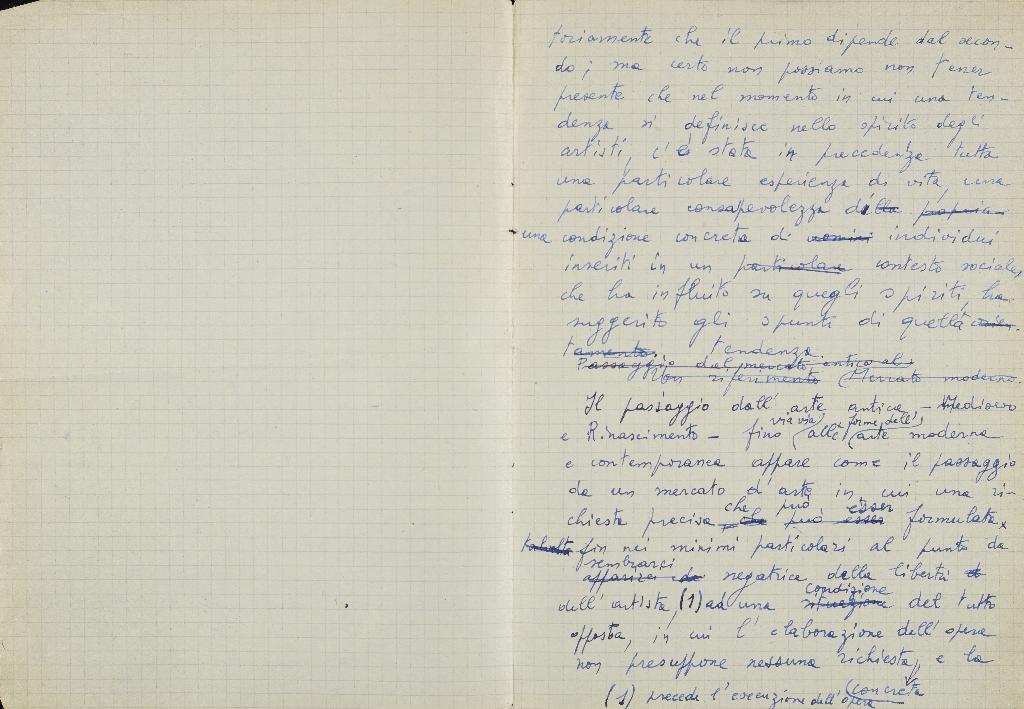 toriamente che il primo dipende dal secon-
do; ma certo non possiamo non tener
presente che nel momento in cui una ten-
denza si definisce nello spirito degli
artisti, c'è stata in precedenza tutta
una particolare esperienza di vita, una
particolare consapevolezza della propria
una condizione concreta di uomini individui
inseriti in un particolare contesto sociale,
che ha influito su quegli spiriti, ha
suggerito gli spunti di quella
tendenza.
Passaggio dal mercato antico al
Con riferimento (Mercato moderno.
Il passaggio dall'arte antica, - Medioevo
via via forme dell'
e Rinascimento - fino alle arte moderna
e contemporanea appare come il passaggio
da un mercato d'arte in cui una ri-
che può esser
chiesta precisa che può esser formulata
fin nei minimi particolari al punto da
sembrarci
apparirci da negatrice della libertà
condizione
dell'artista, (1) ad una situazione del tutto
opposta, in cui l'elaborazione dell'opera
non presuppone nessuna richiesta, e la
(1) precede l'esecuzione dell'opera (concreta